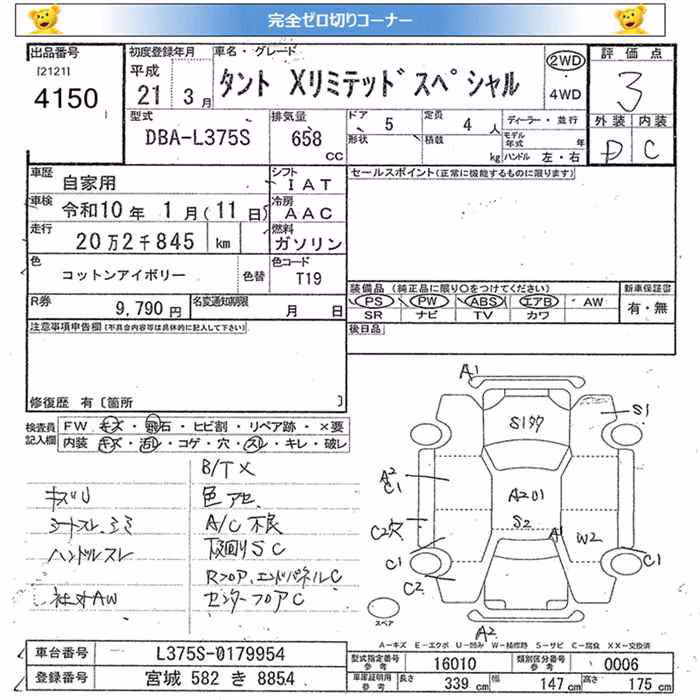 完全ゼロ切りコーナー
出品番号 初度登録年月 車名・グレード 評価点
[2121] 平成 2WD
4150 21 3月 タント Xリミテッドスペシャル ・ 3
4WD
型式 排気量 ドア 5 定員 4人 ディーラー・並行 外装 内装
DBA-L375S 658 CC 形状 積載 kg モデル年式 年 D C
ハンドル 左・右
車歴 自家用 シフト IAT セールスポイント(正常に機能するものに限ります)
車検 令和10年 1月(11日) 冷房 AAC
走行 20万2千845 km 燃料 ガソリン
色 コットンアイボリー 色替 色コード T19
装備品(純正品に限り○をつけてください) 新車保証書
R券 9,790円 名変通知期限 月 日 PS PW ABS エアB AW 有・無
SR ナビ TV カワ
注意事項申告欄(不具合内容等は具体的に記入して下さい) 後日品
修復歴 有〔箇所 〕
検査員記入欄 FW キズ・飛石・ヒビ割・リペア跡・×要
内装 キズ・汚レ・コゲ・穴・スレ・キレ・破レ
B/T X
キズU 色アセ
シートスレ、シミ A/C不良
ハンドルスレ 下回りSC
Rフロア、エンドパネルC
社外AW センターフロアC
A1
S1
A2
C1
A201
S2
A1
W2
C2穴
C1
C1
C2
スペア
A2
A-キズ E-エクボ U-凹み W-補修跡 S-サビ C-腐食 XX-交換済
車台番号 L375S-0179954 型式指定番号 参考 16010 類別区分番号 参考 0006
登録番号 宮城 582 き 8854 車庫証明用 参考 長さ 339cm 幅 147cm 高さ 175cm